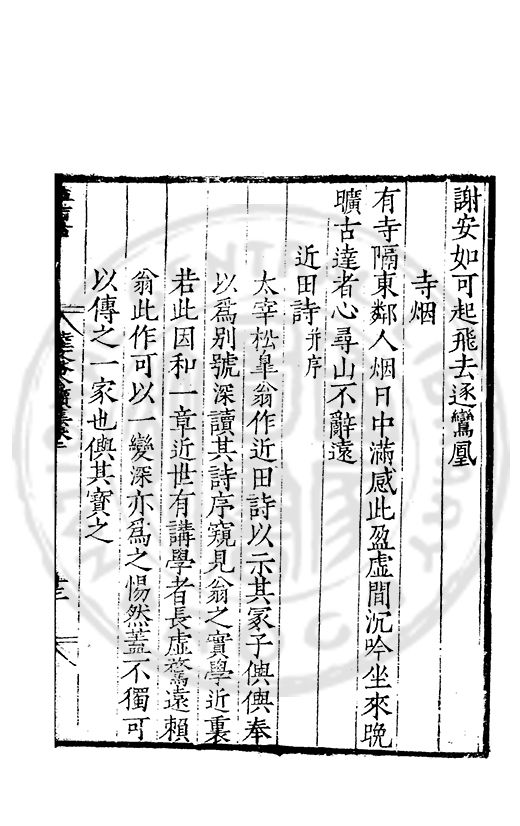 謝安如可起飛去逐鸞凰
寺烟
有寺隔東鄰人烟日中滿感此盈虛間沉吟坐來晚
曠古達者心尋山不辭遠
近田詩并序
太宰松皐翁作近田詩以示其冢子㒜㒜奉
以爲別號深讀其詩序窺見翁之實學近裏
若此因和一章近世有講學者長虛騖遠賴
翁此作可以一變深亦爲之惕然蓋不獨可
以傳之一家也㒜其寶之